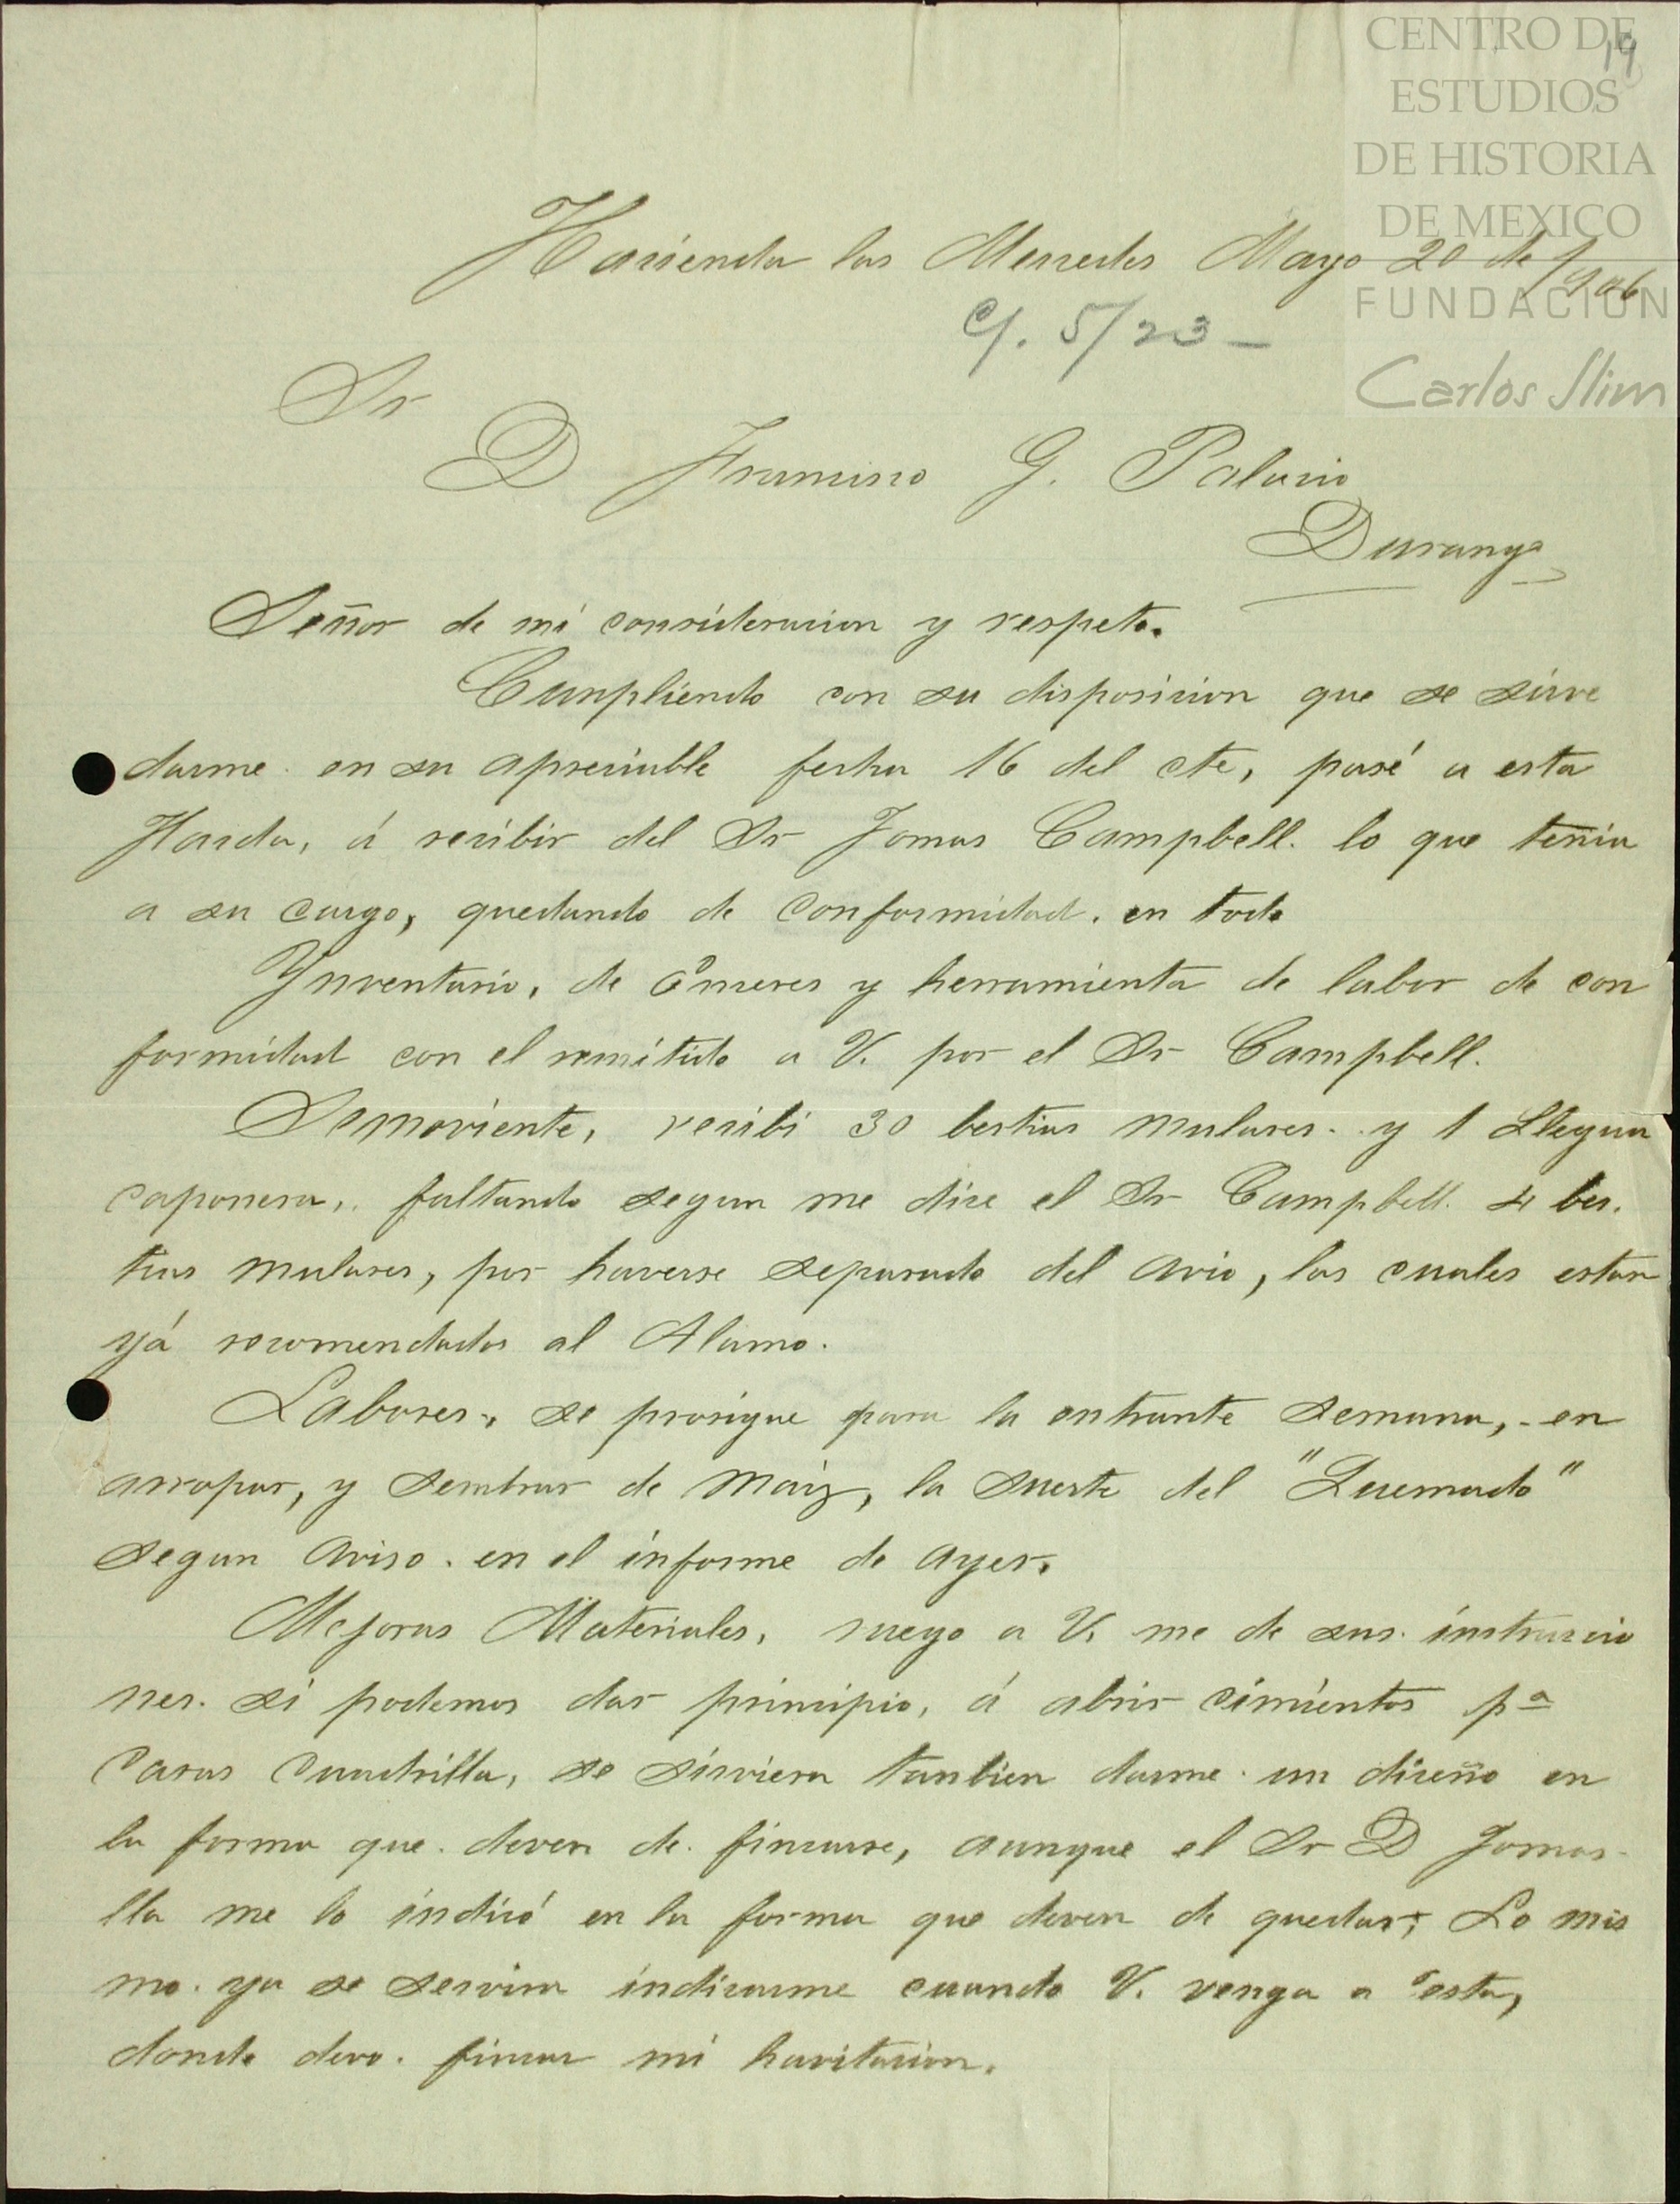 CENTRO DE
ESTUDIOS
DE HISTORIA
DE MEXICO
FUNDACIÓN
Carlos Slim
19
Hacienda las Mercedes Mayo 20 de 1906
C/. 5/23 –
Sr
D Francisco G. Palacio
Durango
Señor de mi consideracion y respeto.
Cunpliendo con su disposicion que se sirve
darme en su apreciable fecha 16 del cte, pasé a esta
Hacda, á recibir del Sr Tomas Campbell. lo que tenia
a su cargo, quedando de conformidad. en todo
Ynventario, de Enseres y herramienta de labor de con
formidad con el remitido a V. por el Sr Campbell.
Semoviente, recibi 30 bestias mulares. y 1 Llegua
caponera,. faltando segun me dice el Sr Campbell. 4 bes.
tias mulares, por haverse separado del avio, las cuales estan
yá recomendadas al Alamo.
Labores., se prosigue para la entrante semana,- en
arropar, y sembrar de Maiz, la suerte del "Quemado"
segun aviso. en el informe de ayer.
Mejoras Materiales, ruego a V. me de sus. instruccio
nes. si podemos dar principio, á abrir cimientos pª
Casas Cuadrilla, se sirviera tanbien darme. un diseño en
la forma que. deven de. fincarse, aunque el Sr D Tomas.
lla me lo indicó en la forma que deven de quedar; Lo mis
mo. ya se servira indicarme cuando V. venga a esta,
donde devo. fincar mi havitacion.